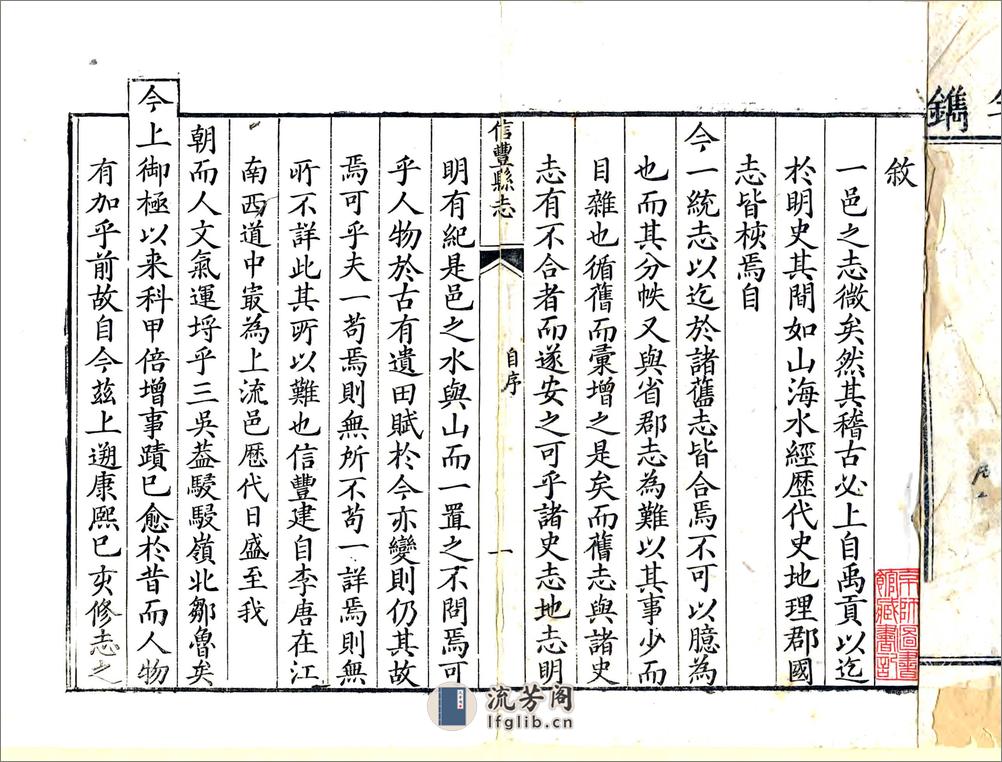 敘
一邑之志微矣然其稽古必上自禹貢以迄
於明史其間如山海水經歷代史地理郡國
志皆核焉自
今一統志以迄於諸舊志皆合焉不可以臆為
也而其分帙又與省郡志為難以其事少而
目雜也循舊而彙增之是矣而舊志與諸史
志有不合者而遂安之可乎諸史志地志明
信豐縣志
自序
一
明有紀是邑之水與山而一置之不問焉可
乎人物於古有遺田賦於今亦變則仍其故
焉可乎夫一苟焉則無所不苟一詳焉則無
所不詳此其所以難也信豐建自李唐在江
南西道中最為上流邑歷代日盛至我
朝而人文氣運埒乎三吳葢駸駸嶺北鄒魯矣
今上御極以来科甲倍增事蹟已愈於昔而人物
有加乎前故自今茲上遡康熙己亥修志之
鐫
京師圖書
館藏書記
流芳阁
lfglib.cn